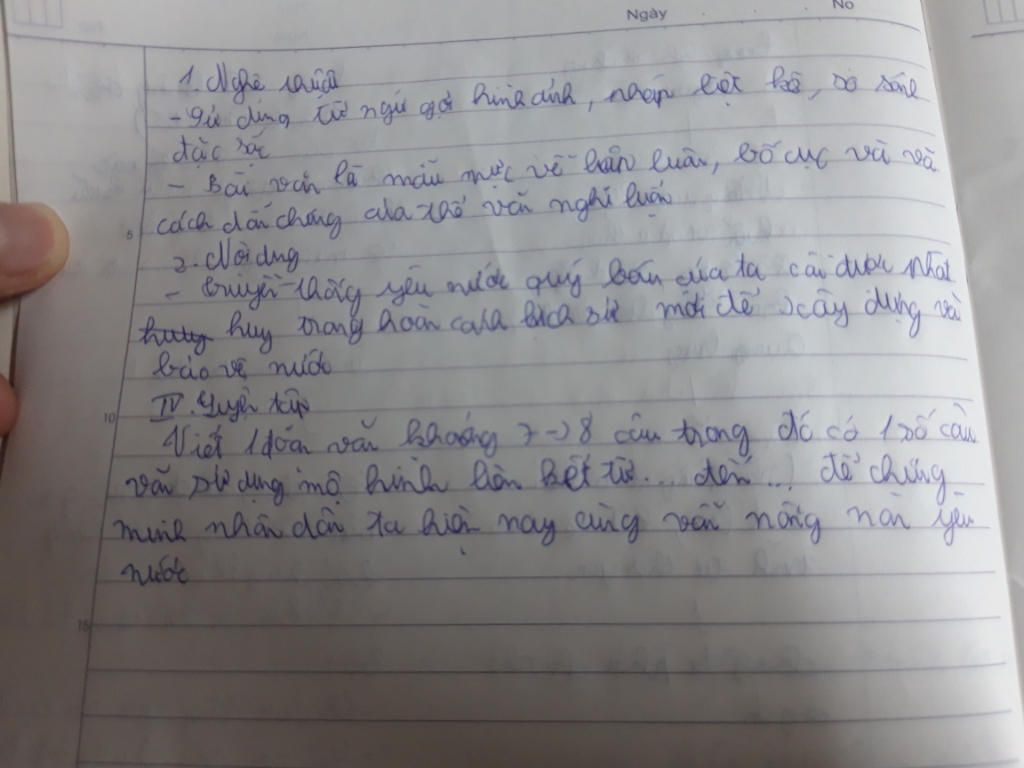 Ngày No
1. Nghệ thuật
- Sử dụng từ ngữ gợi hình ảnh, nhấp liệt kê, so sánh
đặc sắc
- Bài văn là mẫu mực về luận, bố cục và và
cách dẫn chứng của thể văn nghị luận
5
2. Nội dung
- truyền thống yêu nước quý báu của ta cần được phát
huy huy trong hoàn cảnh lịch sử mới để xây dựng và
bảo vệ nước
IV. Luyện tập
10
Viết 1 đoán văn khoảng 7 -> 8 câu trong đó có 1 số câu
văn sử dụng mô hình liên kết từ... đến...! để chứng
minh nhân dân ta hiện nay cũng vẫn nồng nàn yêu
nước
15